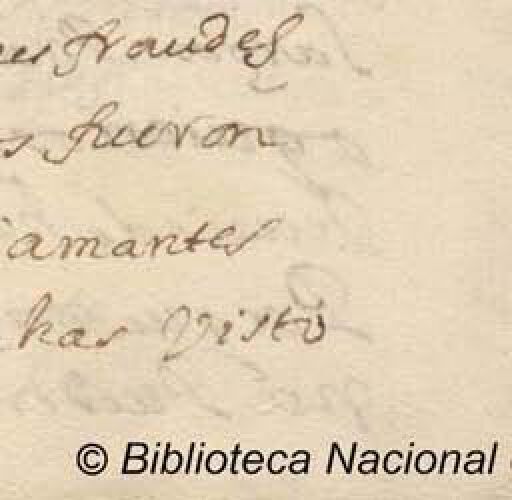 fraudes
fueron
amantes
has visto
© Biblioteca Nacional